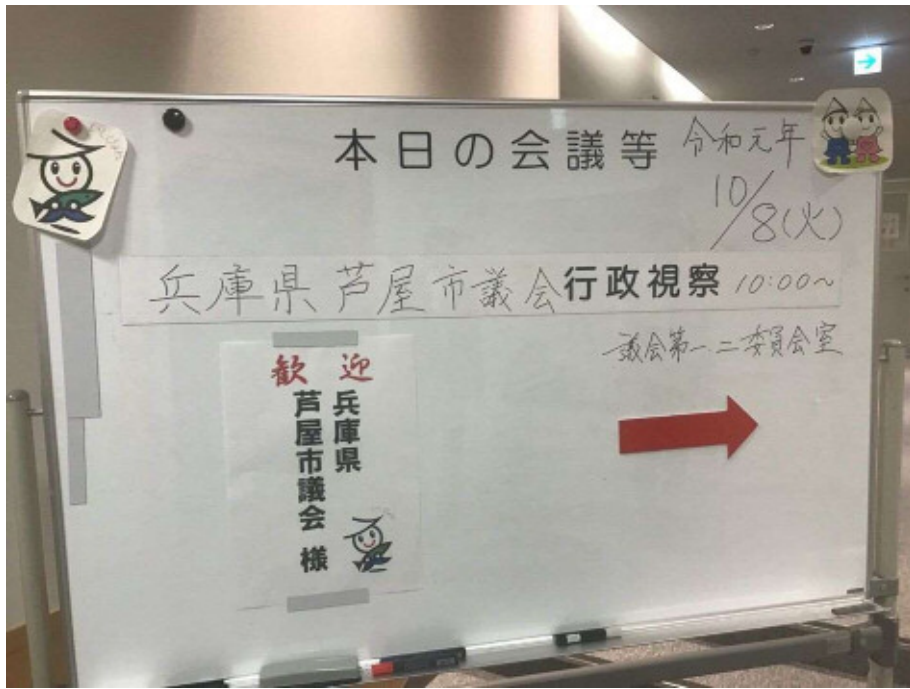 本日の会議等 令和元年
10/8(火)
兵庫県芦屋市議会行政視察 10:00～
議会第一、二委員会室
歓迎
兵庫県
芦屋市議会 様